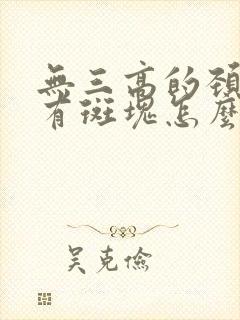 無三高的頸
有斑塊怎麼
吳克儉